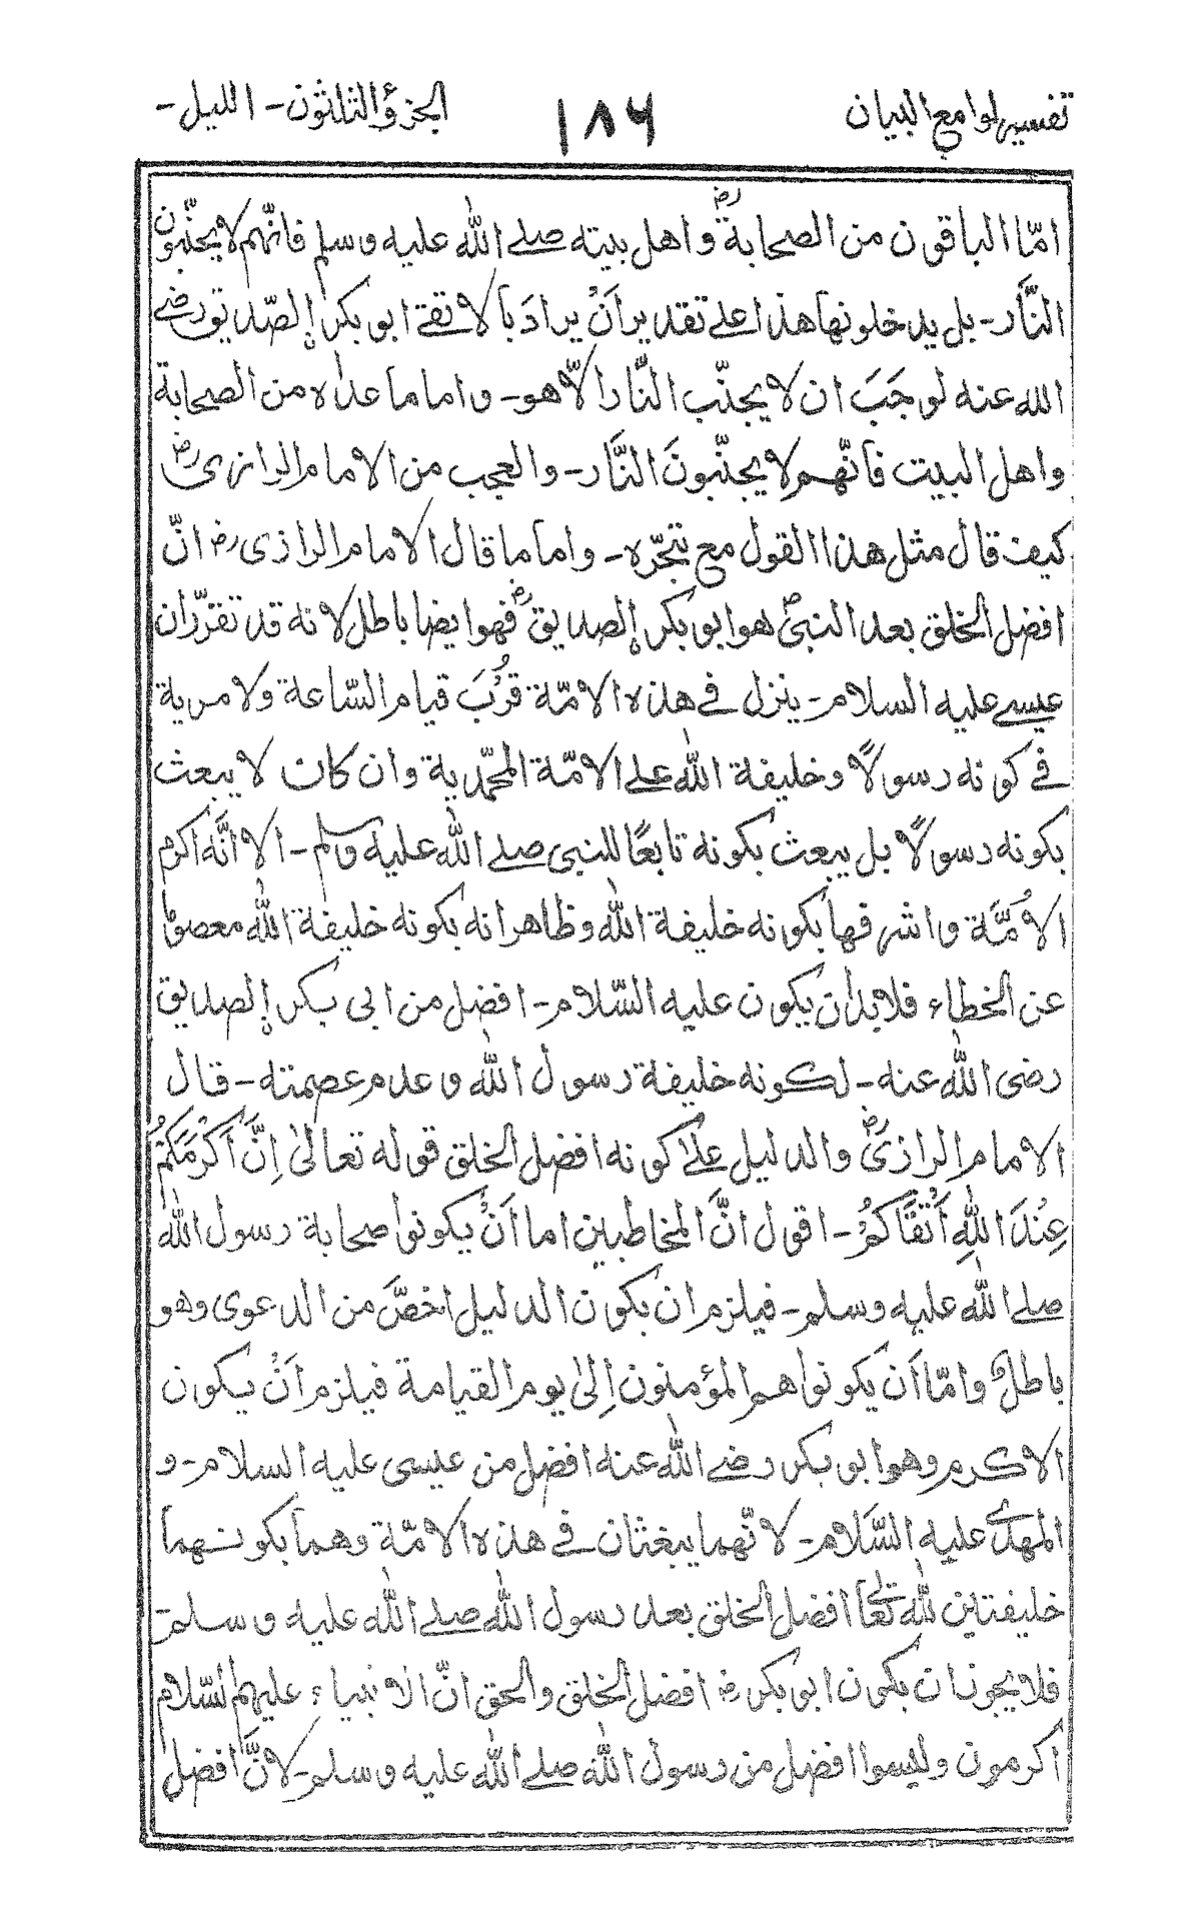 تفسير لوامع البيان ١٨٦ الجزؤ الثلثون - الليل -
امّا الباقون من الصحابة رض واهل بيته صلے الله عليه وسلم فانّهم لا يجنّبون
النَّار - بل يدخلونها هذا علے تقدير انْ يرادَ بالاتقے ابو بكر إلصّديق رضے
الله عنه لوجَبَ ان لا يجنّب النَّار الّا هو - واما ما عداه من الصحابة
واهل البيت فانّهم لا يجنّبونَ النَّار - والعجب من الامام الرازى رض
كيف قال مثل هذا القول مع تبحّره - واما ما قال الامام الرازى رض انّ
افضل الخلق بعد النبى ص هو ابو بكر إلصديق رض فهو ايضا باطل لانه قد تقرّر ان
عيسے عليه السلام - ينزل فے هذه الامّة قُرُبَ قيام السّاعة ولا مرية
فے كونه رسولًا وخليفة الله علے الامّة المحمّدية وان كان لا يبعث
بكونه رسولًا بل يبعث بكونه تابعًا للنبى صلے الله عليه وسلم - الا انَّه اكرم
الاُمَّة واشرفها بكونه خليفة الله وظاهر انه بكونه خليفة الله معصوم
عن الخطاء فلا بد ان يكون عليه السّلام - افضل من ابى بكر إلصديق
رضى الله عنه - لكونه خليفة رسول الله وعدم عصمته - قال
الامام الرازى رض والدليل علے كونه افضل الخلق قوله تعالىٰ اِنَّ اَكْرَمَكُمْ
عِنْدَ اللهِ اَتْقَاكُمْ - اقول انَّ المخاطبين اما اَنْ يكونوا صحابة رسول الله
صلے الله عليه وسلم - فيلزم ان يكون الدليل اخصَّ من الدعوى وهو
باطلٌ وامّا اَن يكونوا هم المؤمنون اِلىٰ يوم القيامة فيلزم اَنْ يكون
الاكرم وهو ابو بكر رضے الله عنه افضل من عيسى عليه السلام - و
المهدى عليه السَّلام - لانّهما يبعثان فے هذه الامّة وهما بكونهما
خليفتين لله تعالىٰ افضل الخلق بعد رسول الله صلے الله عليه وسلم -
فلا يجوز ان يكون ابو بكر رض افضل الخلق والحق انّ الانبياء عليهم السّلام
اكرمون وليسوا افضل من رسول الله صلے الله عليه وسلم - لانَّ افضل